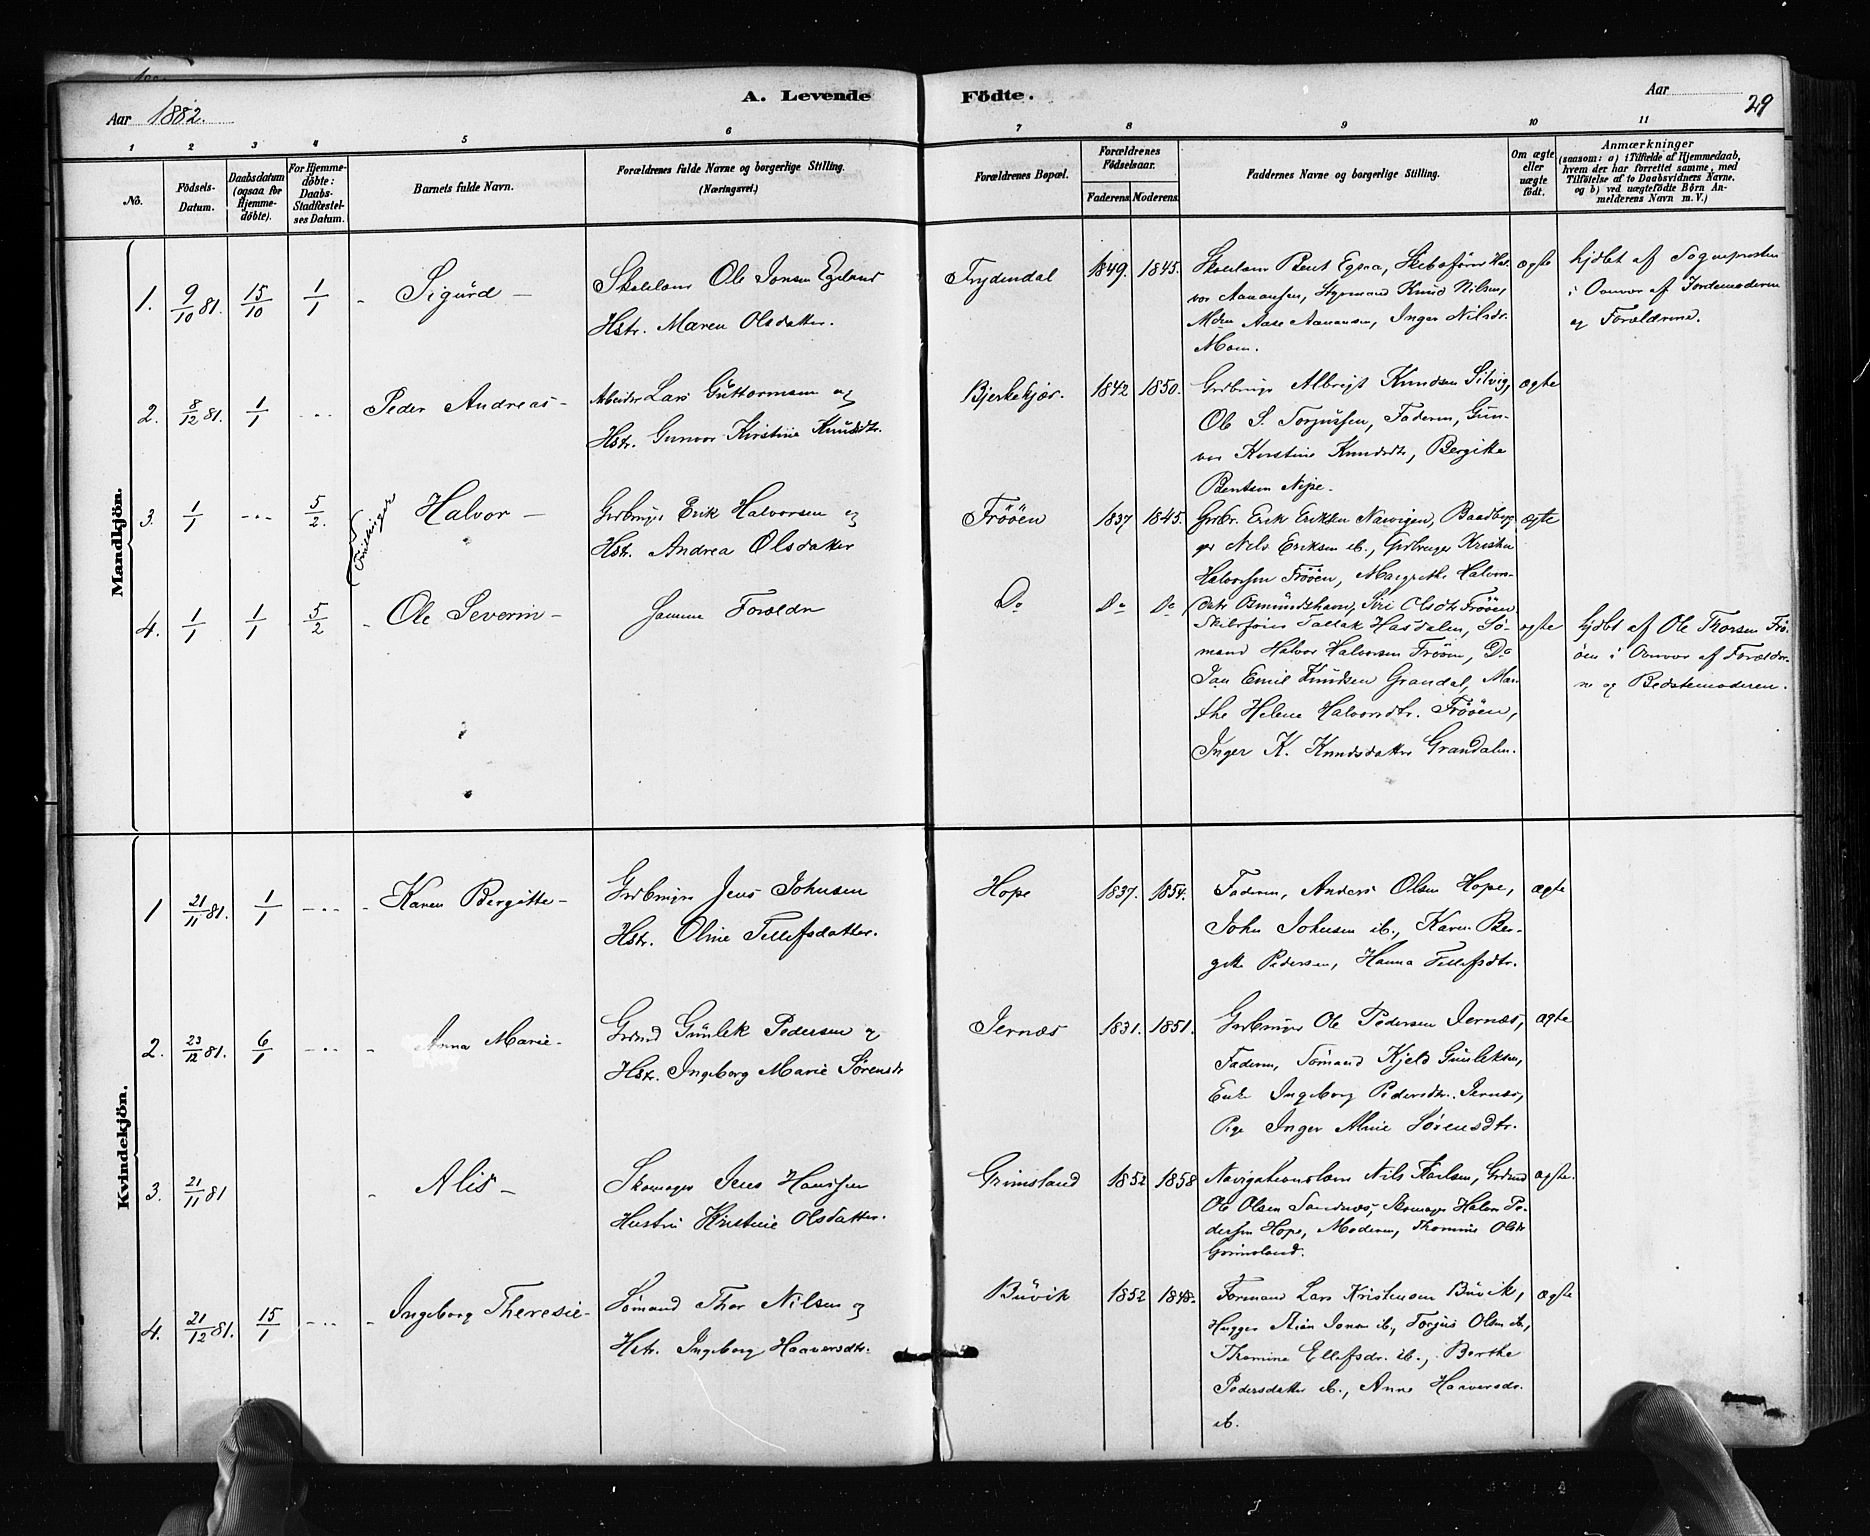 A. Levende Födte.
Aar 1882.
Aar
29
1 2 3 4 5 6 7 8 9 10 11
No.
Födsels-Datum.
Daabsdatum (ogsaa for Hjemmedöbte).
For Hjemmedöbte: Daabs-Stadfæstelses Datum.
Barnets fulde Navn.
Forældrenes fulde Navne og borgerlige Stilling. (Næringsvei.)
Forældrenes Bopæl.
Forældrenes Födselsaar.
Faderens Moderens.
Faddernes Navne og borgerlige Stilling.
Om ægte eller uægte födt.
Anmærkninger
(saasom: a) i Tilfælde af Hjemmedaab,
hvem der har forrettet samme, med
Tilföielse af to Daabsvidners Navne.
og b) ved uægtefödte Börn Anmelderens Navn m. V.)
Mandkjön.
1. 9/10 81. 15/10 1/1 - Sigurd -
Skolelær Ole Jonsen Egeland
Hstr. Maren Olsdatter.
Frydendal 1849. 1845.
Skolelær Bent Egsaa, Skibsförer Hal-
vor Aanonsen, Styrmand Knud Nilsen,
Mdm Aase Aanonsen, Inger Nilsdr.
Moen.
ægte
hjdbt af Sogneprosten
i Ovnvær af Jordemoderen
og Forældrene.
2. 8/12 81. 1/1 - - - Peder Andreas -
Arbeider Lars Guttormsen og
Hstr. Gunvor Kirstine Knudsdtr.
Bjerkekjær. 1842 1850.
Grdbruger Albregt Knudsen Silvig,
Ole S. Torjussen, Faderen, Gun-
vor Kirstine Knudsdtr, Bergitte
Bentsen Nipe.
ægte
3. 1/1 - - - 5/2. Tvillinger Halvor -
Grdbruger Erik Halvorsen og
Hstr. Andrea Olsdatter
Frööen 1837 1845.
Grdbr. Erik Eriksen Narvigen, Baadbyg-
ger Nils Eriksen ib., Grdbruger Kristen
Halvorsen Frööen, Margrethe Halvors-
datr Osmundshavn, Siri Olsdtr Frööen
ægte
4. 1/1 1/1 5/2 - Ole Severin -
Samme Forældre
Do Do Do
Skibsförer Tallak Hasdalen, Sö-
mand Halvor Halvorsen Frööen, Do
Jan Emil Knudsen Grandal, Mar-
the Helene Halvorsdtr. Frööen,
Inger K. Knudsdatter Grandalen.
ægte
hjdbt af Ole Thorsen Frö-
öen i Ovnvær af Forældre-
ne og Bedstemoderen.
Kvindekjön.
1 21/11 81. 1/1 - - - - Karen Bergitte -
Grdbruger Jens Johnsen
Hstr. Oline Tellefsdatter.
Hope 1837. 1854.
Faderen, Anders Olsen Hope,
John Johnsen ib., Karen Ber-
gitte Pedersen, Hanna Tellefsdtr.
ægte
2. 23/12 81. 6/1 - - - - Anna Marie -
Grdmd Gunlek Pedersen og
Hstr. Ingeborg Marie Sörensdr
Jernæs 1831. 1851.
Grdbruger Ole Pedersen Jernæs,
Faderen, Sömand Kjeld Gunleksen,
Enke Ingeborg Pedersdtr. Jernæs,
Pige Inger Aline Sörensdtr.
ægte
3. 21/11 81 - Alis -
Skomager Jens Hanssen
Hustru Kirstine Olsdatter.
Grimsland 1852 1858
Navigationslærer Nils Karlsen, Grdmd
Ole Olsen Sandnæs, Skomager Halvor Pe-
dersen Hope, Moderen, Thomine Olsdr
Grimsland.
ægte.
4. 21/12 81. 15/1 - - - - Ingeborg Theresie -
Sömand Thor Nilsen og
Hstr. Ingeborg Haaversdtr.
Buvik 1852 1848.
Formand Lars Kristensen Buvik,
Hugger Stian Jensen ib., Torjus Olsen ib.,
Thomine Ellefsdr. ib., Berthe
Pedersdatter ib., Anne Haaversdr.
ib.
ægte